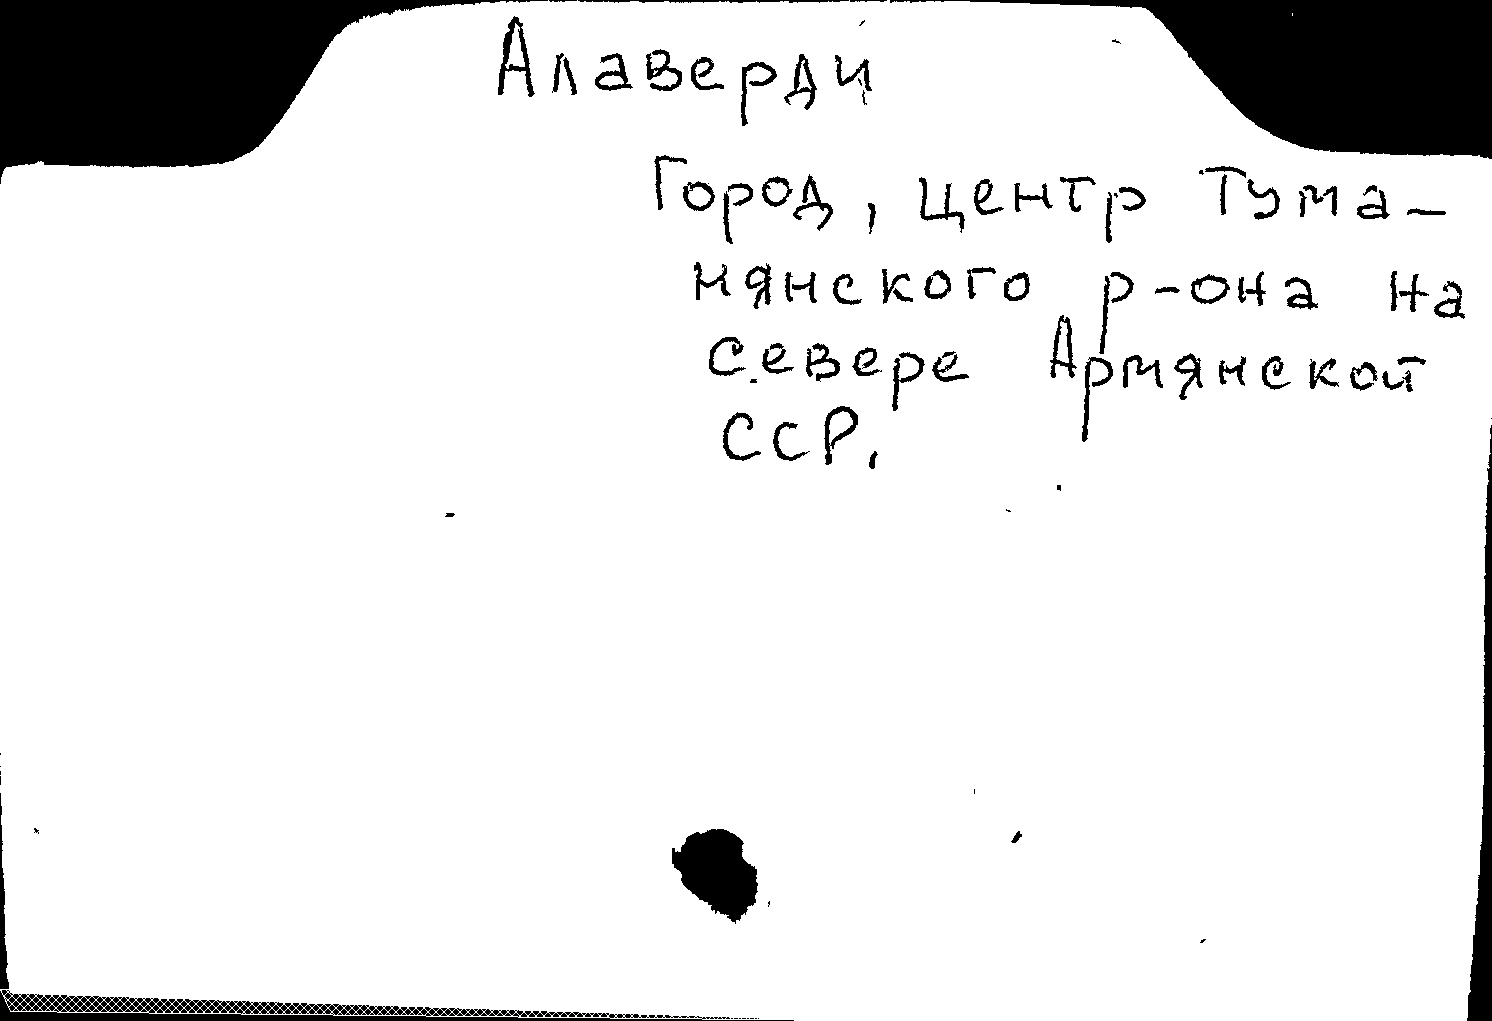 Алаверди
Город, центр Тума-
нянского р-она на
севере Армянской
ССР.